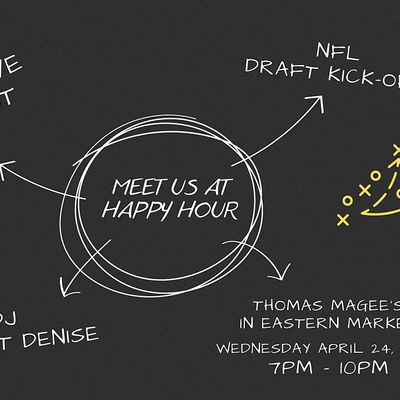 NFL
DRAFT KICK-O
MEET US AT
HAPPY HOUR
DJ
T DENISE
THOMAS MAGEE'S
IN EASTERN MARKE
WEDNESDAY APRIL 24,
7PM - 10PM